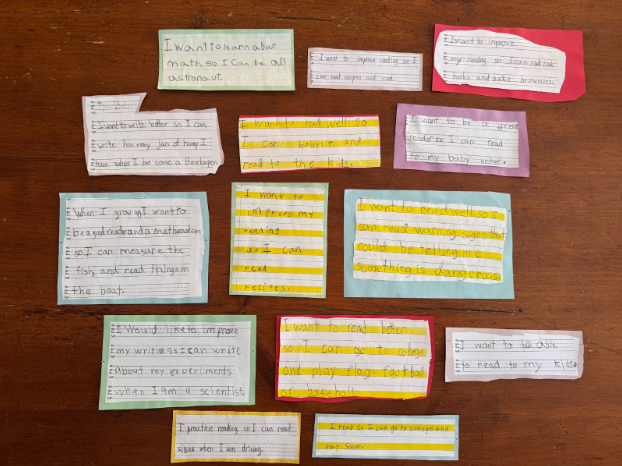 I want to learn about
math so I can be an
astronaut.
I want to improve reading so I
can read
I want to improve
my reading so I can read cook
books and bake brownies.
I want to write better so I can
write how many jars of honey I
when I become a Beekeeper.
I want to read well so
I can babysit and
read to the kids.
I want to be a great
reader so I can read
to my baby sister.
When I grow up I want to
be a good reader and a mathematician
so I can measure the
fish and read things on
the boat.
I want to
improve my
reading
so I can
read
recipes.
I want to read well so I
can read warning signs that
could be telling me
something is dangerous.
I Would like to improve
my writing so I can write
about my experiments
when I am a scientist.
I want to read better
so I can go to college
and play flag football
or baseball.
I want to be able
to read to my kids.
I practice reading so I can read
signs when I am driving.
I read so I can go to college and
play soccer.